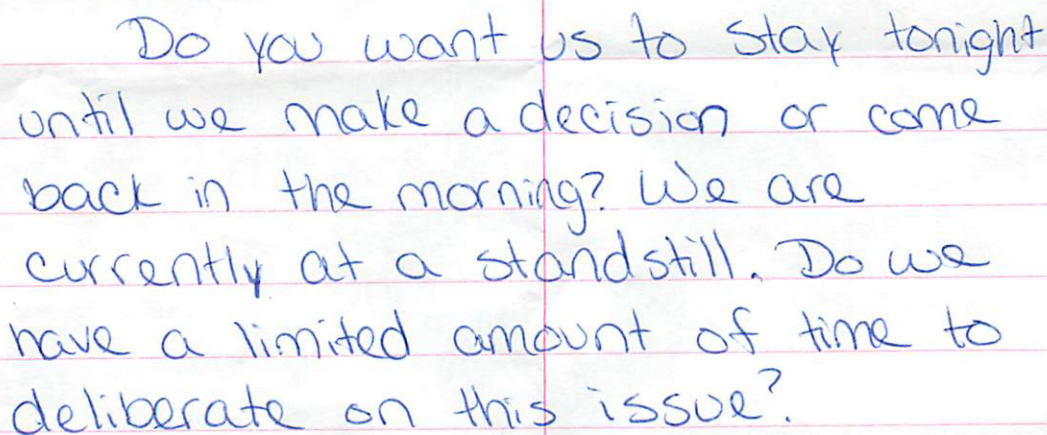 Do you want us to stay tonight
until we make a decision or come
back in the morning? We are
currently at a standstill. Do we
have a limited amount of time to
deliberate on this issue?